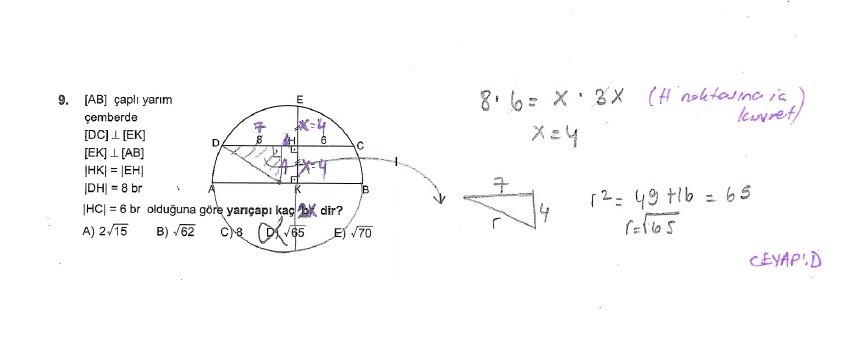 9. [AB] çaplı yarım
çemberde
[DC] ⊥ [EK]
[EK] ⊥ [AB]
|HK| = |EH|
|DH| = 8 br
|HC| = 6 br olduğuna göre yarıçapı kaç br dir?
A) 2√15 B) √62 C) 8 D) √65 E) √70
E
7 x=4
D 8 H 6 C
4 x=4
A K B
2x
8·6 = x · 3x (H noktasına iç
kuvvet)
x=4
7
4
r
r² = 49 + 16 = 65
r=√65
CEVAP:D